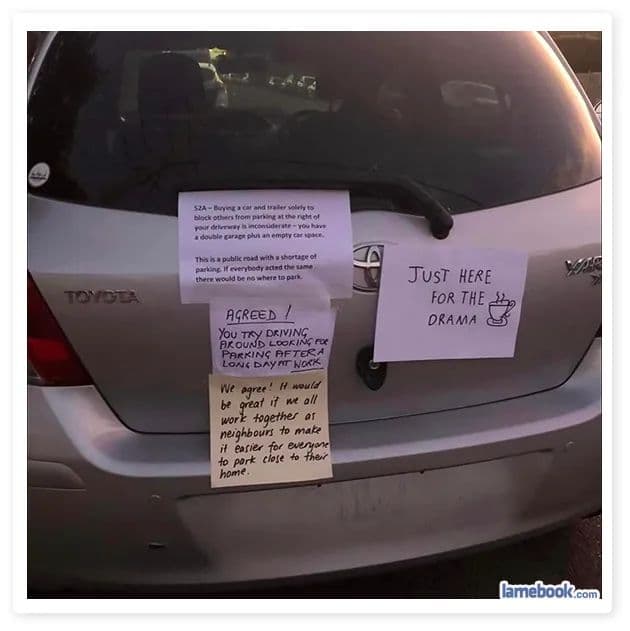 52A – Buying a car and trailer solely to
block others from parking at the right of
your driveway is inconsiderate – you have
a double garage plus an empty car space.
This is a public road with a shortage of
parking. If everybody acted the same
there would be no where to park.
AGREED !
YOU TRY DRIVING
AROUND LOOKING FOR
PARKING AFTER A
LONG DAY AT WORK
We agree! It would
be great if we all
work together as
neighbours to make
it easier for everyone
to park close to their
home.
JUST HERE
FOR THE
DRAMA
TOYOTA
lamebook.com